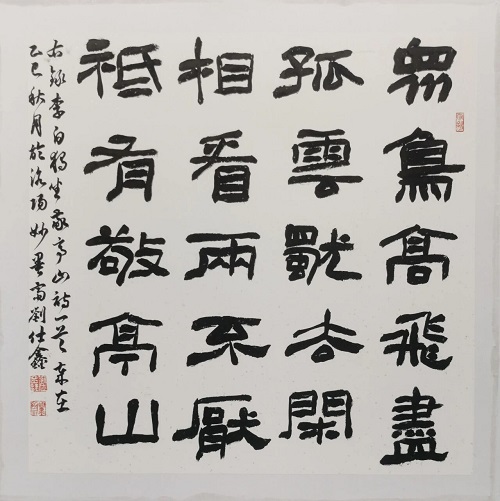 眾鳥高飛盡
孤雲獨去閑
相看兩不厭
祗有敬亭山
右錄李白獨坐敬亭山詩一首 歲在
乙巳秋月於洛陽妙墨齋劉仕鑫